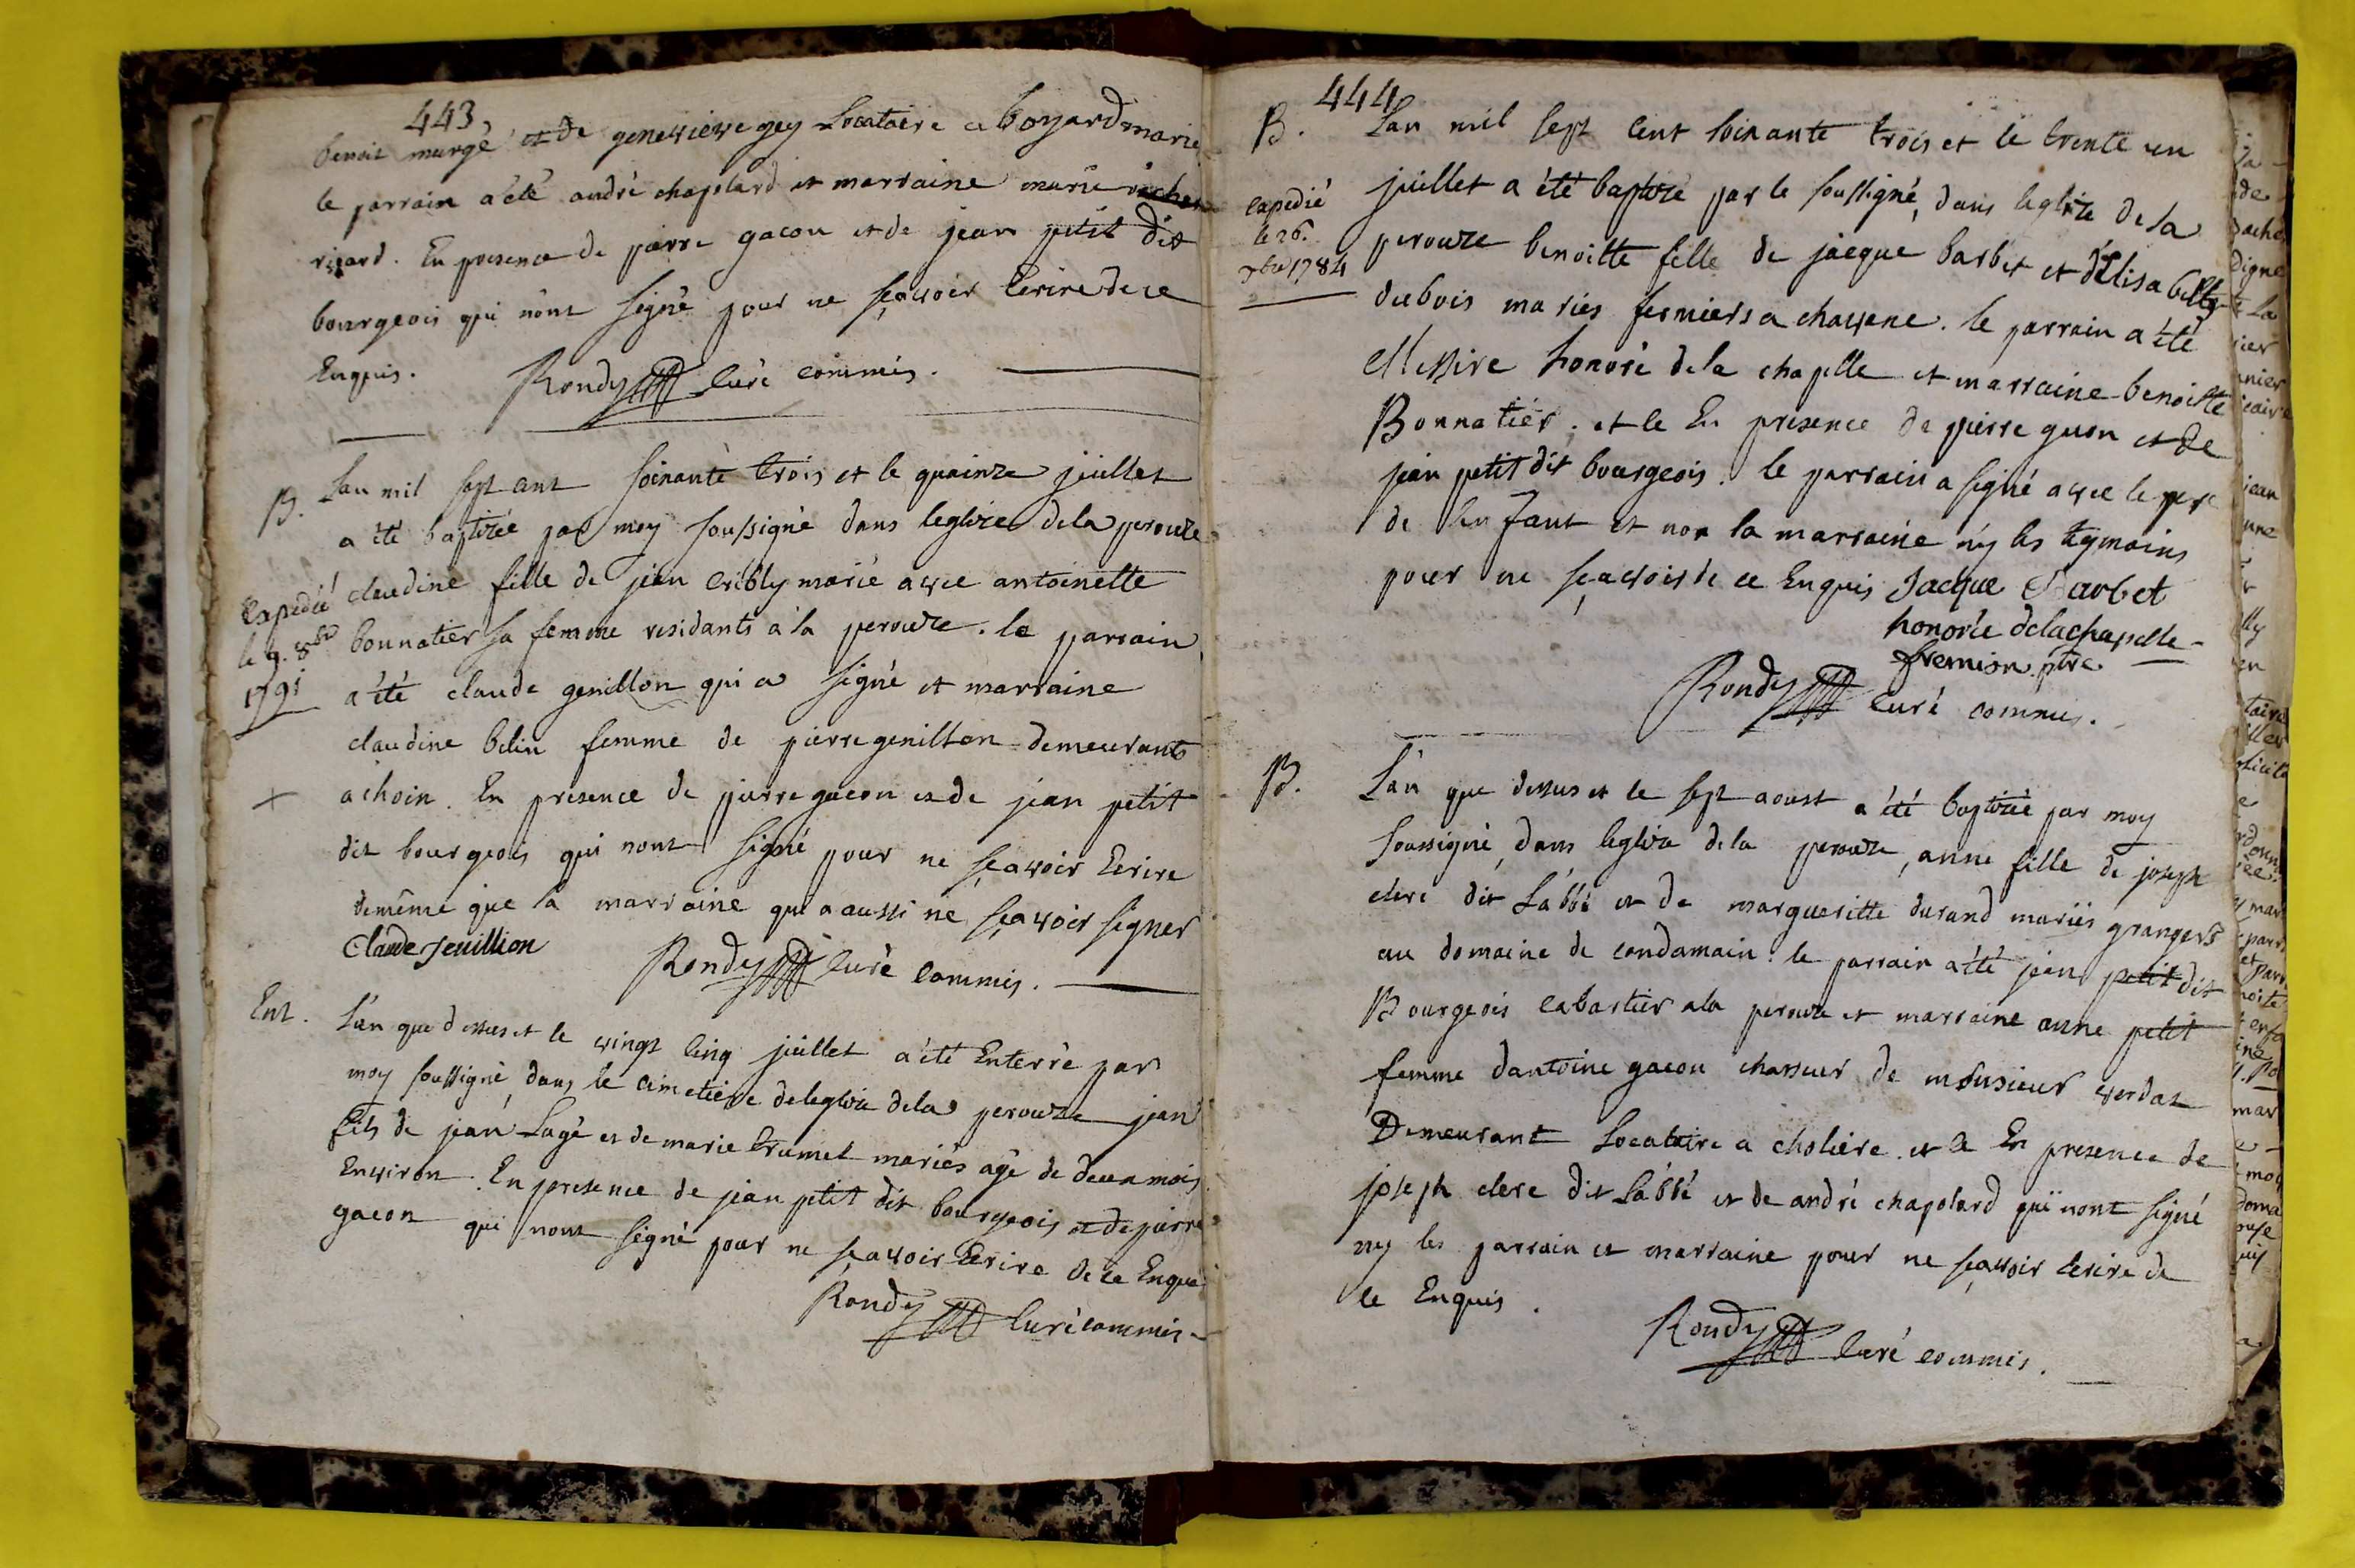 443
benoit murgé et de genevieve gey Locataire a boyard marié
le parrain a été andré chapolard et marraine marie
ricard. En presence de pierre gacon et de jean petit dit
bourgeois qui n'ont signé pour ne sçavoir Ecrire de ce
Enquis. Rondy Curé commis.
B. Lan mil sept cent soixante trois et le quainze juillet
a été baptizée par moy soussigné dans leglize de la perouze
claudine fille de jean cribly marié avec antoinette
Expedié
le 9. 8bre
1791
bonnatier sa femme residants à la perouze. le parrain
a été claude genillon qui a signé et marraine
claudine belin femme de pierre genillon demeurants
a choin. En presence de pierre gacon et de jean petit
dit bourgeois qui nont signé pour ne sçavoir Ecrire
demême que la marraine qui a aussi ne sçavoir signer
Claude Jenillion Rondy Curé Commis.
Ent. L'an que dessus et le vingt cinq juillet a été Enterré par
moy soussigné, dans le cimetiere de leglize dela perouze jean
fils de jean Lagé et de marie trumel mariés agé de deux mois
Environ. En presence de jean petit dit bourgeois et de pierre
gacon qui nont signé pour ne sçavoir Ecrire de ce Enquis
Rondy Curé commis
444
B. Lan mil sept cent soixante trois et le trente un
juillet a été baptizé par le soussigné, dans leglize de la
expedié
le 26.
xbre 1784
perouze benoitte fille de jacque barbet et d'Elisabeth
dubois mariés fermiers a chavene. le parrain a été
Messire honoré de la chapelle et marraine benoitte
Bonnatier. et le En presence de pierre guon et de
jean petit dit bourgeois. le parrain a signé avec le pere
de lenfant et non la marraine n'y les temoins
pour ne sçavoir de ce Enquis Jacque Barbet
honorée delachapelle
fremion ptre
Rondy Curé commis.
B. L'an que dessus et le sept aoust a été baptizée par moy
soussigné, dans leglize de la perouze, anne fille de joseph
clerc dit Labbé et de margueritte durand mariés grangers
au domaine de condamain. le parrain a été jean petit dit
Bourgeois cabartier ala perouze et marraine anne petit
femme dantoine gacon chasseur de monsieur verdat
Demeurant Locataire a choliere. et le En presence de
joseph clerc dit Labbé et de andré chapolard qui nont signé
ny les parrain et marraine pour ne sçavoir Ecrire de
ce Enquis.
Rondy Curé commis.